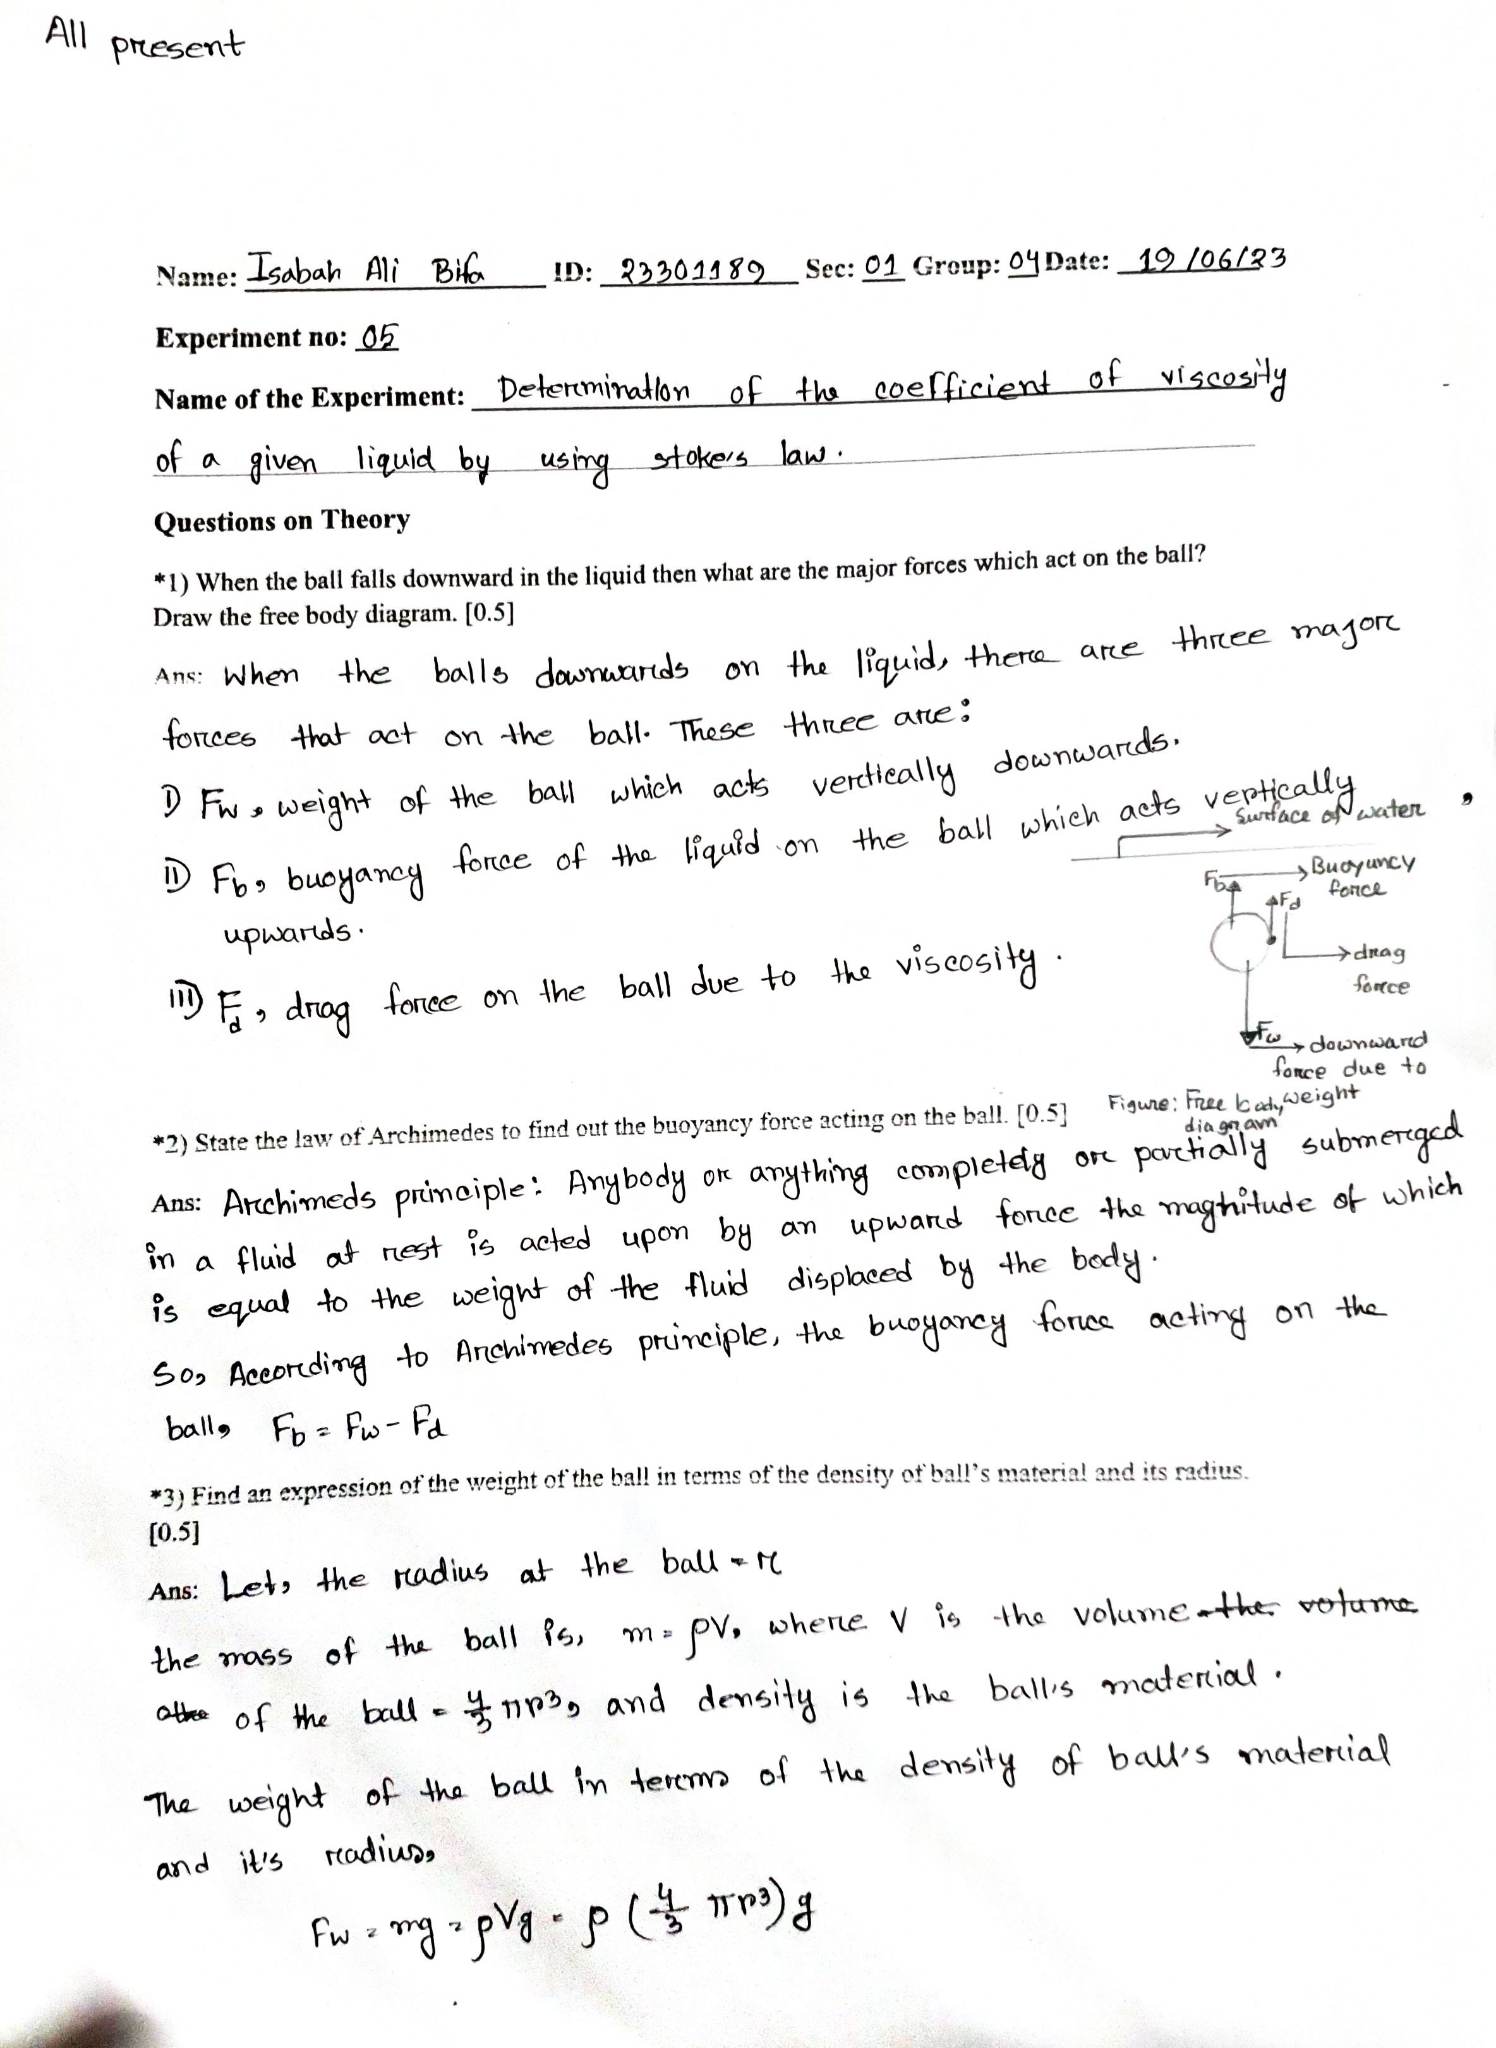 All present
Name: Isabah Ali Bifa ID: 23301189 Sec: 01 Group: 04 Date: 19/06/23
Experiment no: 05
Name of the Experiment: Determination of the coefficient of viscosity
of a given liquid by using stoke's law.
Questions on Theory
*1) When the ball falls downward in the liquid then what are the major forces which act on the ball?
Draw the free body diagram. [0.5]
Ans: When the balls downwards on the liquid, there are three major
forces that act on the ball. These three are:
I) Fw, weight of the ball which acts vertically downwards.
II) Fb, buoyancy force of the liquid on the ball which acts vertically
upwards.
III) Fd, drag force on the ball due to the viscosity.
Surface of water
Fb
Buoyuncy
force
Fd
drag
force
Fw
downward
force due to
weight
Figure: Free body
diagram
*2) State the law of Archimedes to find out the buoyancy force acting on the ball. [0.5]
Ans: Archimeds principle: Anybody or anything completely or partially submerged
in a fluid at rest is acted upon by an upward force the maghitude of which
is equal to the weight of the fluid displaced by the body.
So, According to Archimedes principle, the buoyancy force acting on the
ball, Fb = Fw - Fd
*3) Find an expression of the weight of the ball in terms of the density of ball's material and its radius.
[0.5]
Ans: Let, the radius at the ball = r
the mass of the ball is, m = ρV, where V is the volume the volume
of the ball = 4/3 πr³, and density is the ball's material.
The weight of the ball in terms of the density of ball's material
and it's radius,
Fw = mg = ρVg = ρ (4/3 πr³) g